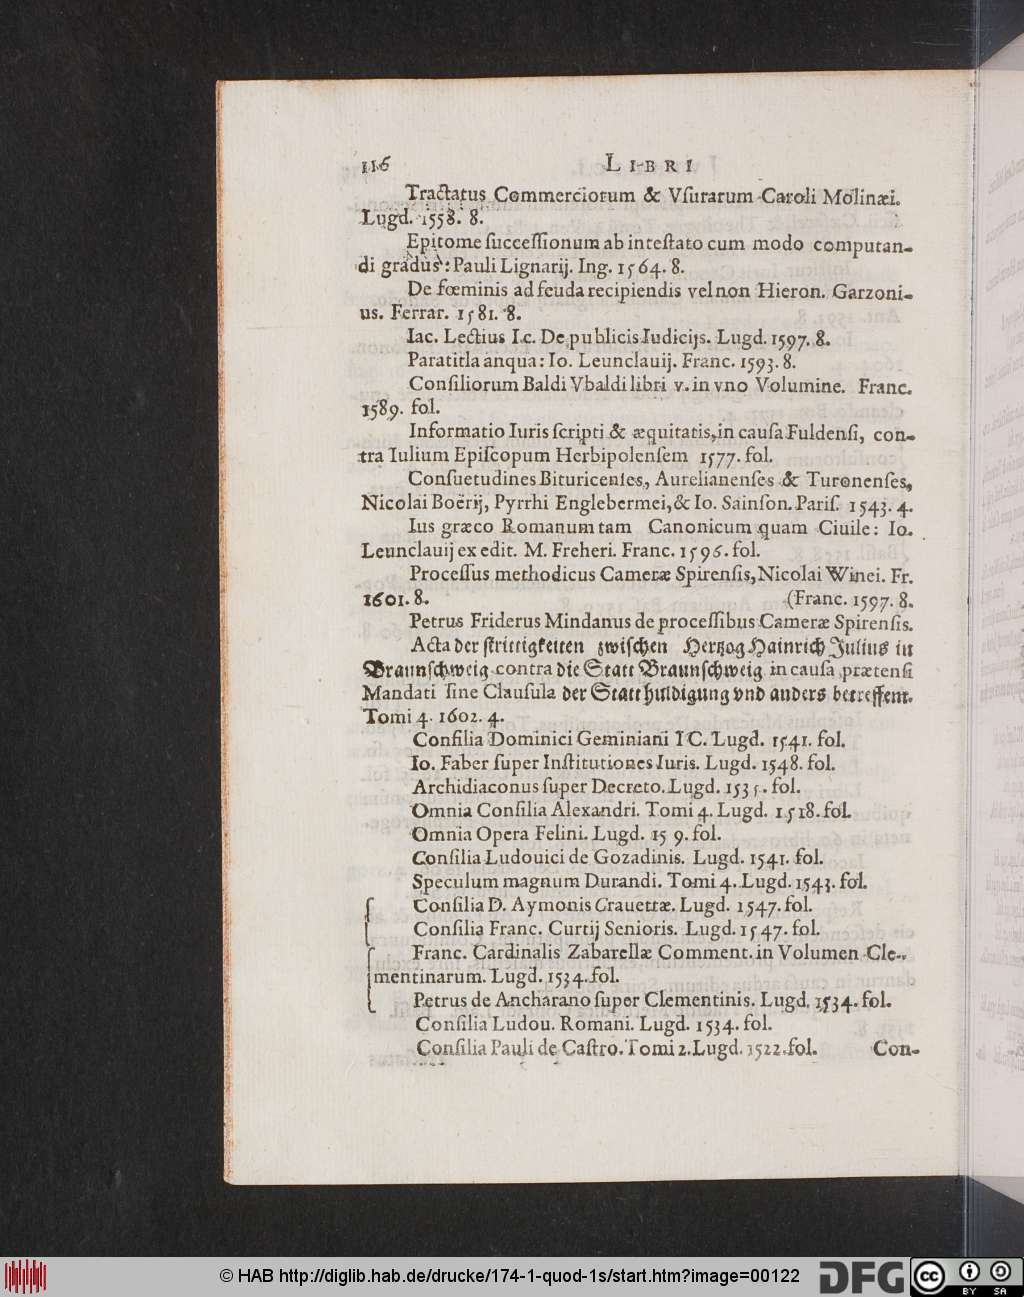 116 LIBRI
Tractatus Commerciorum & Vſurarum Caroli Molinæi.
Lugd. 1558. 8.
Epitome ſucceſſionum ab inteſtato cum modo computan-
di gradus: Pauli Lignarij. Ing. 1564. 8.
De fœminis ad feuda recipiendis vel non Hieron. Garzoni-
us. Ferrar. 1581. 8.
Iac. Lectius I.c. De publicis Iudicijs. Lugd. 1597. 8.
Paratitla anqua: Io. Leunclauij. Franc. 1593. 8.
Conſiliorum Baldi Vbaldi libri v. in vno Volumine. Franc.
1589. fol.
Informatio Iuris ſcripti & æquitatis, in cauſa Fuldenſi, con-
tra Iulium Epiſcopum Herbipolenſem 1577. fol.
Conſuetudines Bituricenſes, Aurelianenſes & Turonenſes,
Nicolai Boërij, Pyrrhi Englebermei, & Io. Sainſon. Pariſ. 1543. 4.
Ius græco Romanum tam Canonicum quam Ciuile: Io.
Leunclauij ex edit. M. Freheri. Franc. 1596. fol.
Proceſſus methodicus Cameræ Spirenſis, Nicolai Winei. Fr.
1601. 8. (Franc. 1597. 8.
Petrus Friderus Mindanus de proceſſibus Cameræ Spirenſis.
Acta der ſtrittigkeiten zwiſchen Hertzog Hainrich Julius in
Braunſchweig contra die Statt Braunſchweig in cauſa prætenſi
Mandati ſine Clauſula der Statt huldigung vnd anders betreffent.
Tomi 4. 1602. 4.
Conſilia Dominici Geminiani IC. Lugd. 1541. fol.
Io. Faber ſuper Inſtitutiones Iuris. Lugd. 1548. fol.
Archidiaconus ſuper Decreto. Lugd. 1535. fol.
Omnia Conſilia Alexandri. Tomi 4. Lugd. 1518. fol.
Omnia Opera Felini. Lugd. 15 9. fol.
Conſilia Ludouici de Gozadinis. Lugd. 1541. fol.
Speculum magnum Durandi. Tomi 4. Lugd. 1543. fol.
Conſilia D. Aymonis Crauettæ. Lugd. 1547. fol.
Conſilia Franc. Curtij Senioris. Lugd. 1547. fol.
Franc. Cardinalis Zabarellæ Comment. in Volumen Cle-
mentinarum. Lugd. 1534. fol.
Petrus de Ancharano ſuper Clementinis. Lugd. 1534. fol.
Conſilia Ludou. Romani. Lugd. 1534. fol.
Conſilia Pauli de Caſtro. Tomi 2. Lugd. 1522. fol. Con-
© HAB http://diglib.hab.de/drucke/174-1-quod-1s/start.htm?image=00122 DFG CC BY SA